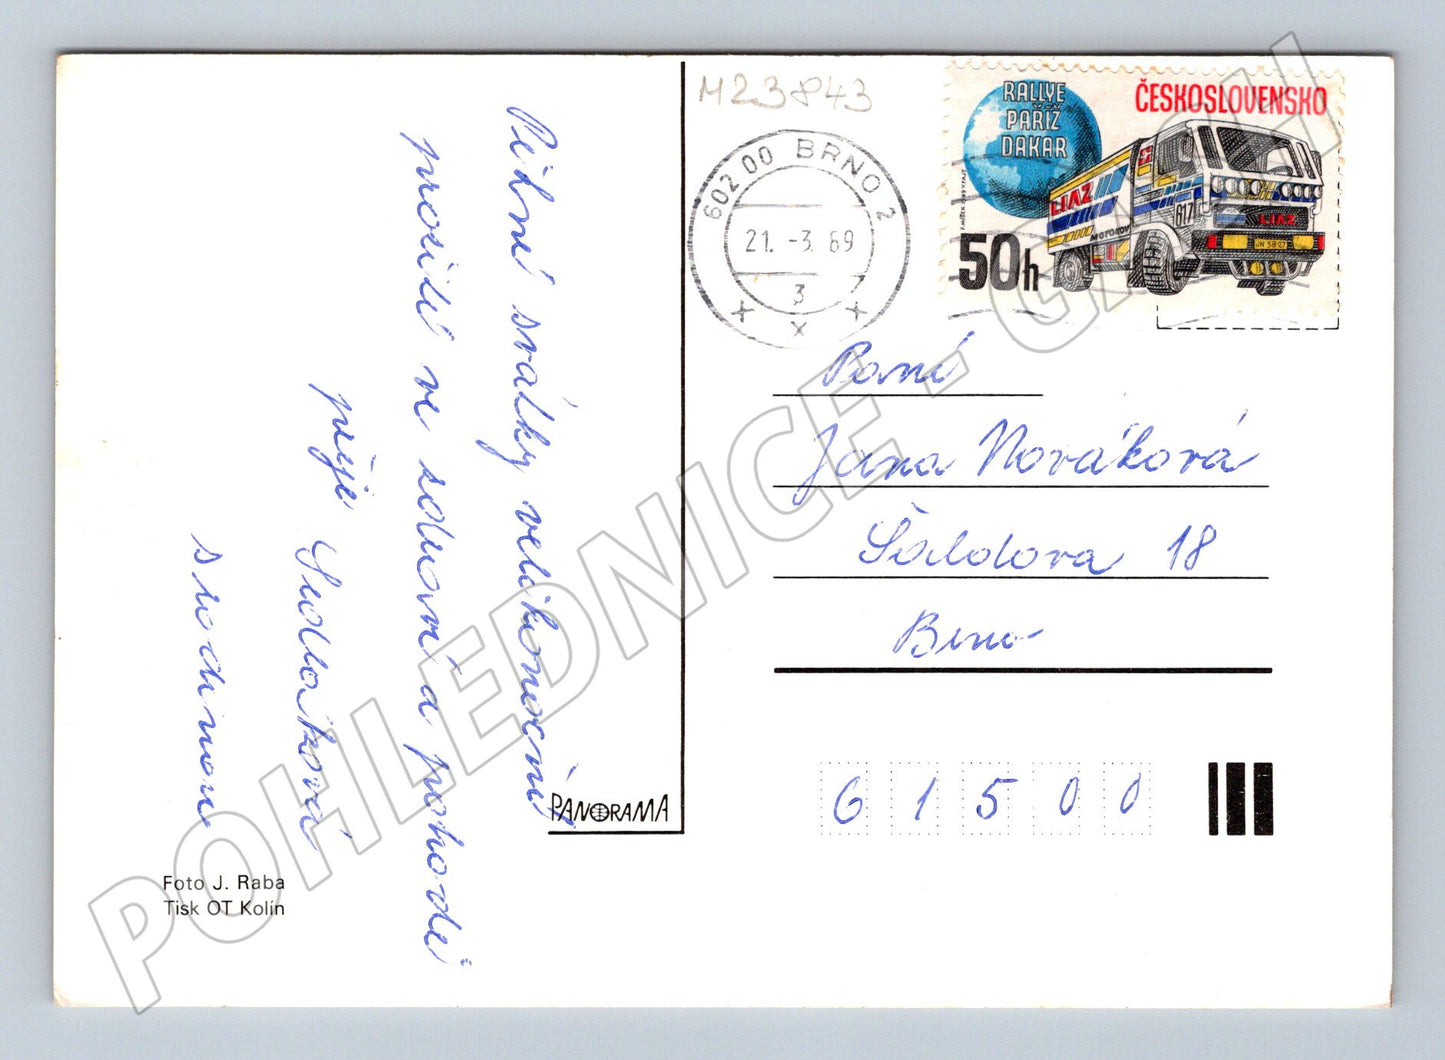 Pěkné svátky velikonoční
prožité ve zdraví a pohodě
přeje Sedláková
s rodinou
Foto J. Raba
Tisk OT Kolín
PANORAMA
M23843
602 00 BRNO 2
21. -3. 89
3
RALLYE
PAŘÍŽ
DAKAR
ČESKOSLOVENSKO
50h
LIAZ
MOTOKOV
617
LIAZ
JN 58-27
Paní
Jana Nováková
Šaldova 18
Brno
61500
POHLEDNICE - GACH